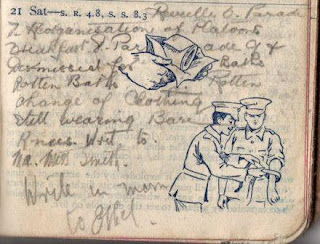 21 Sat—S. R. 4.8, S. S. 8.3 Reveille 6. Parade
7 Reorganisation Platoons
Breakfast 8. Parade 9 &
dismissed for Baths
Rotten Baths Rotten
change of Clothing
still wearing Bare
Knees. Writ to.
Ma. Miss Smith.
Write in morn
to Ethel.